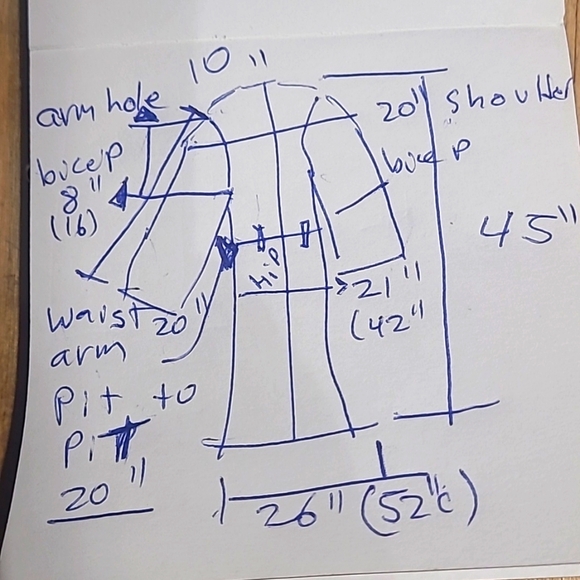 10"
arm hole
20" Shoulder
bicep
8"
(16)
bicep
45"
Hip
21"
(42"
waist 20"
arm
Pit to
Pit
20"
26" (52"c)